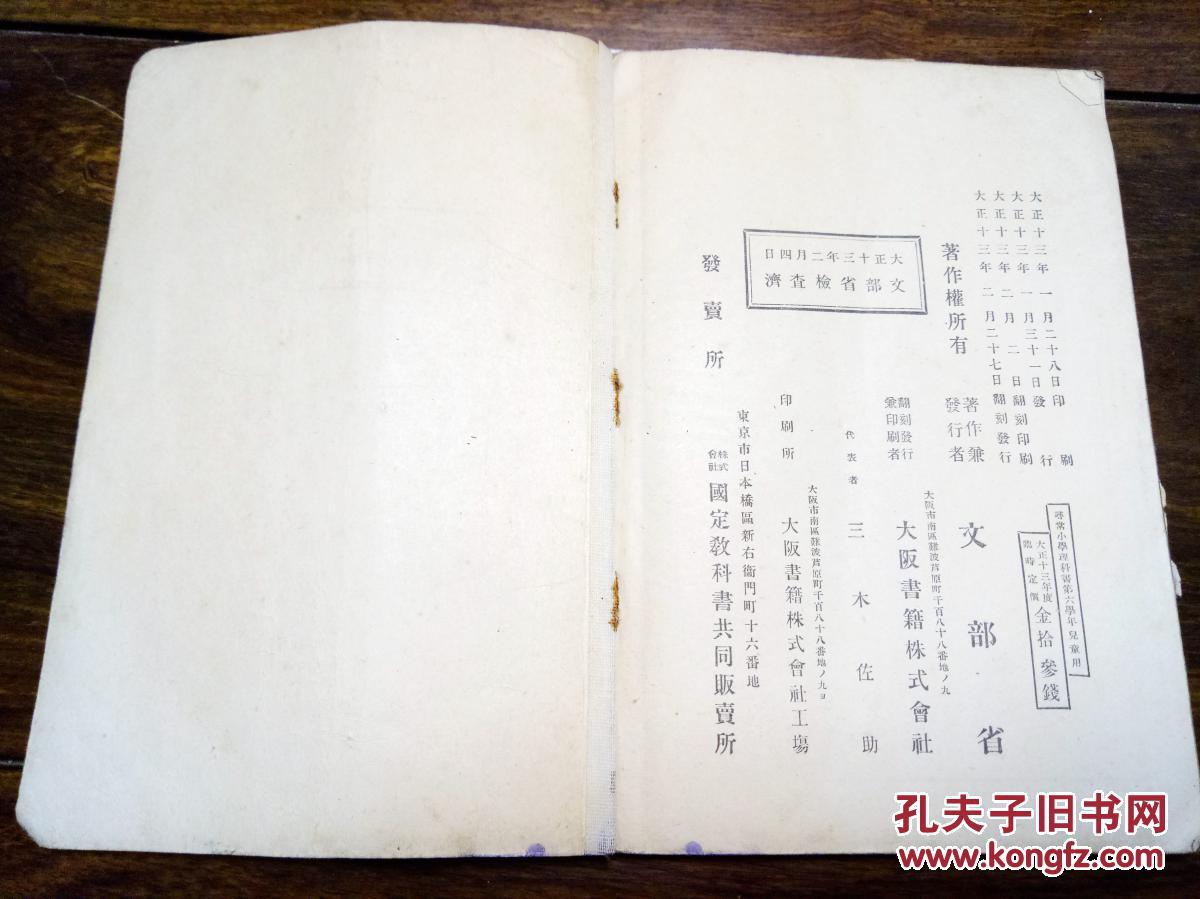 大正十三年一月二十八日印刷
大正十三年一月三十一日發行
大正十三年二月二日翻刻印刷
大正十三年二月二十七日翻刻發行
著作權所有
尋常小學理科書第六學年兒童用
大正十三年度
臨時定價
金拾參錢
著作兼
發行者
文部省
大阪市南區難波芦原町千百八十八番地ノ九
翻刻發行
兼印刷者
大阪書籍株式會社
代表者
三木佐助
大阪市南區難波芦原町千百八十八番地ノ九ヨ
印刷所
大阪書籍株式會社工塲
大正十三年二月四日
文部省檢査濟
東京市日本橋區新右衞門町十六番地
發賣所
株式
會社
國定敎科書共同販賣所
孔夫子旧书网
www.kongfz.com